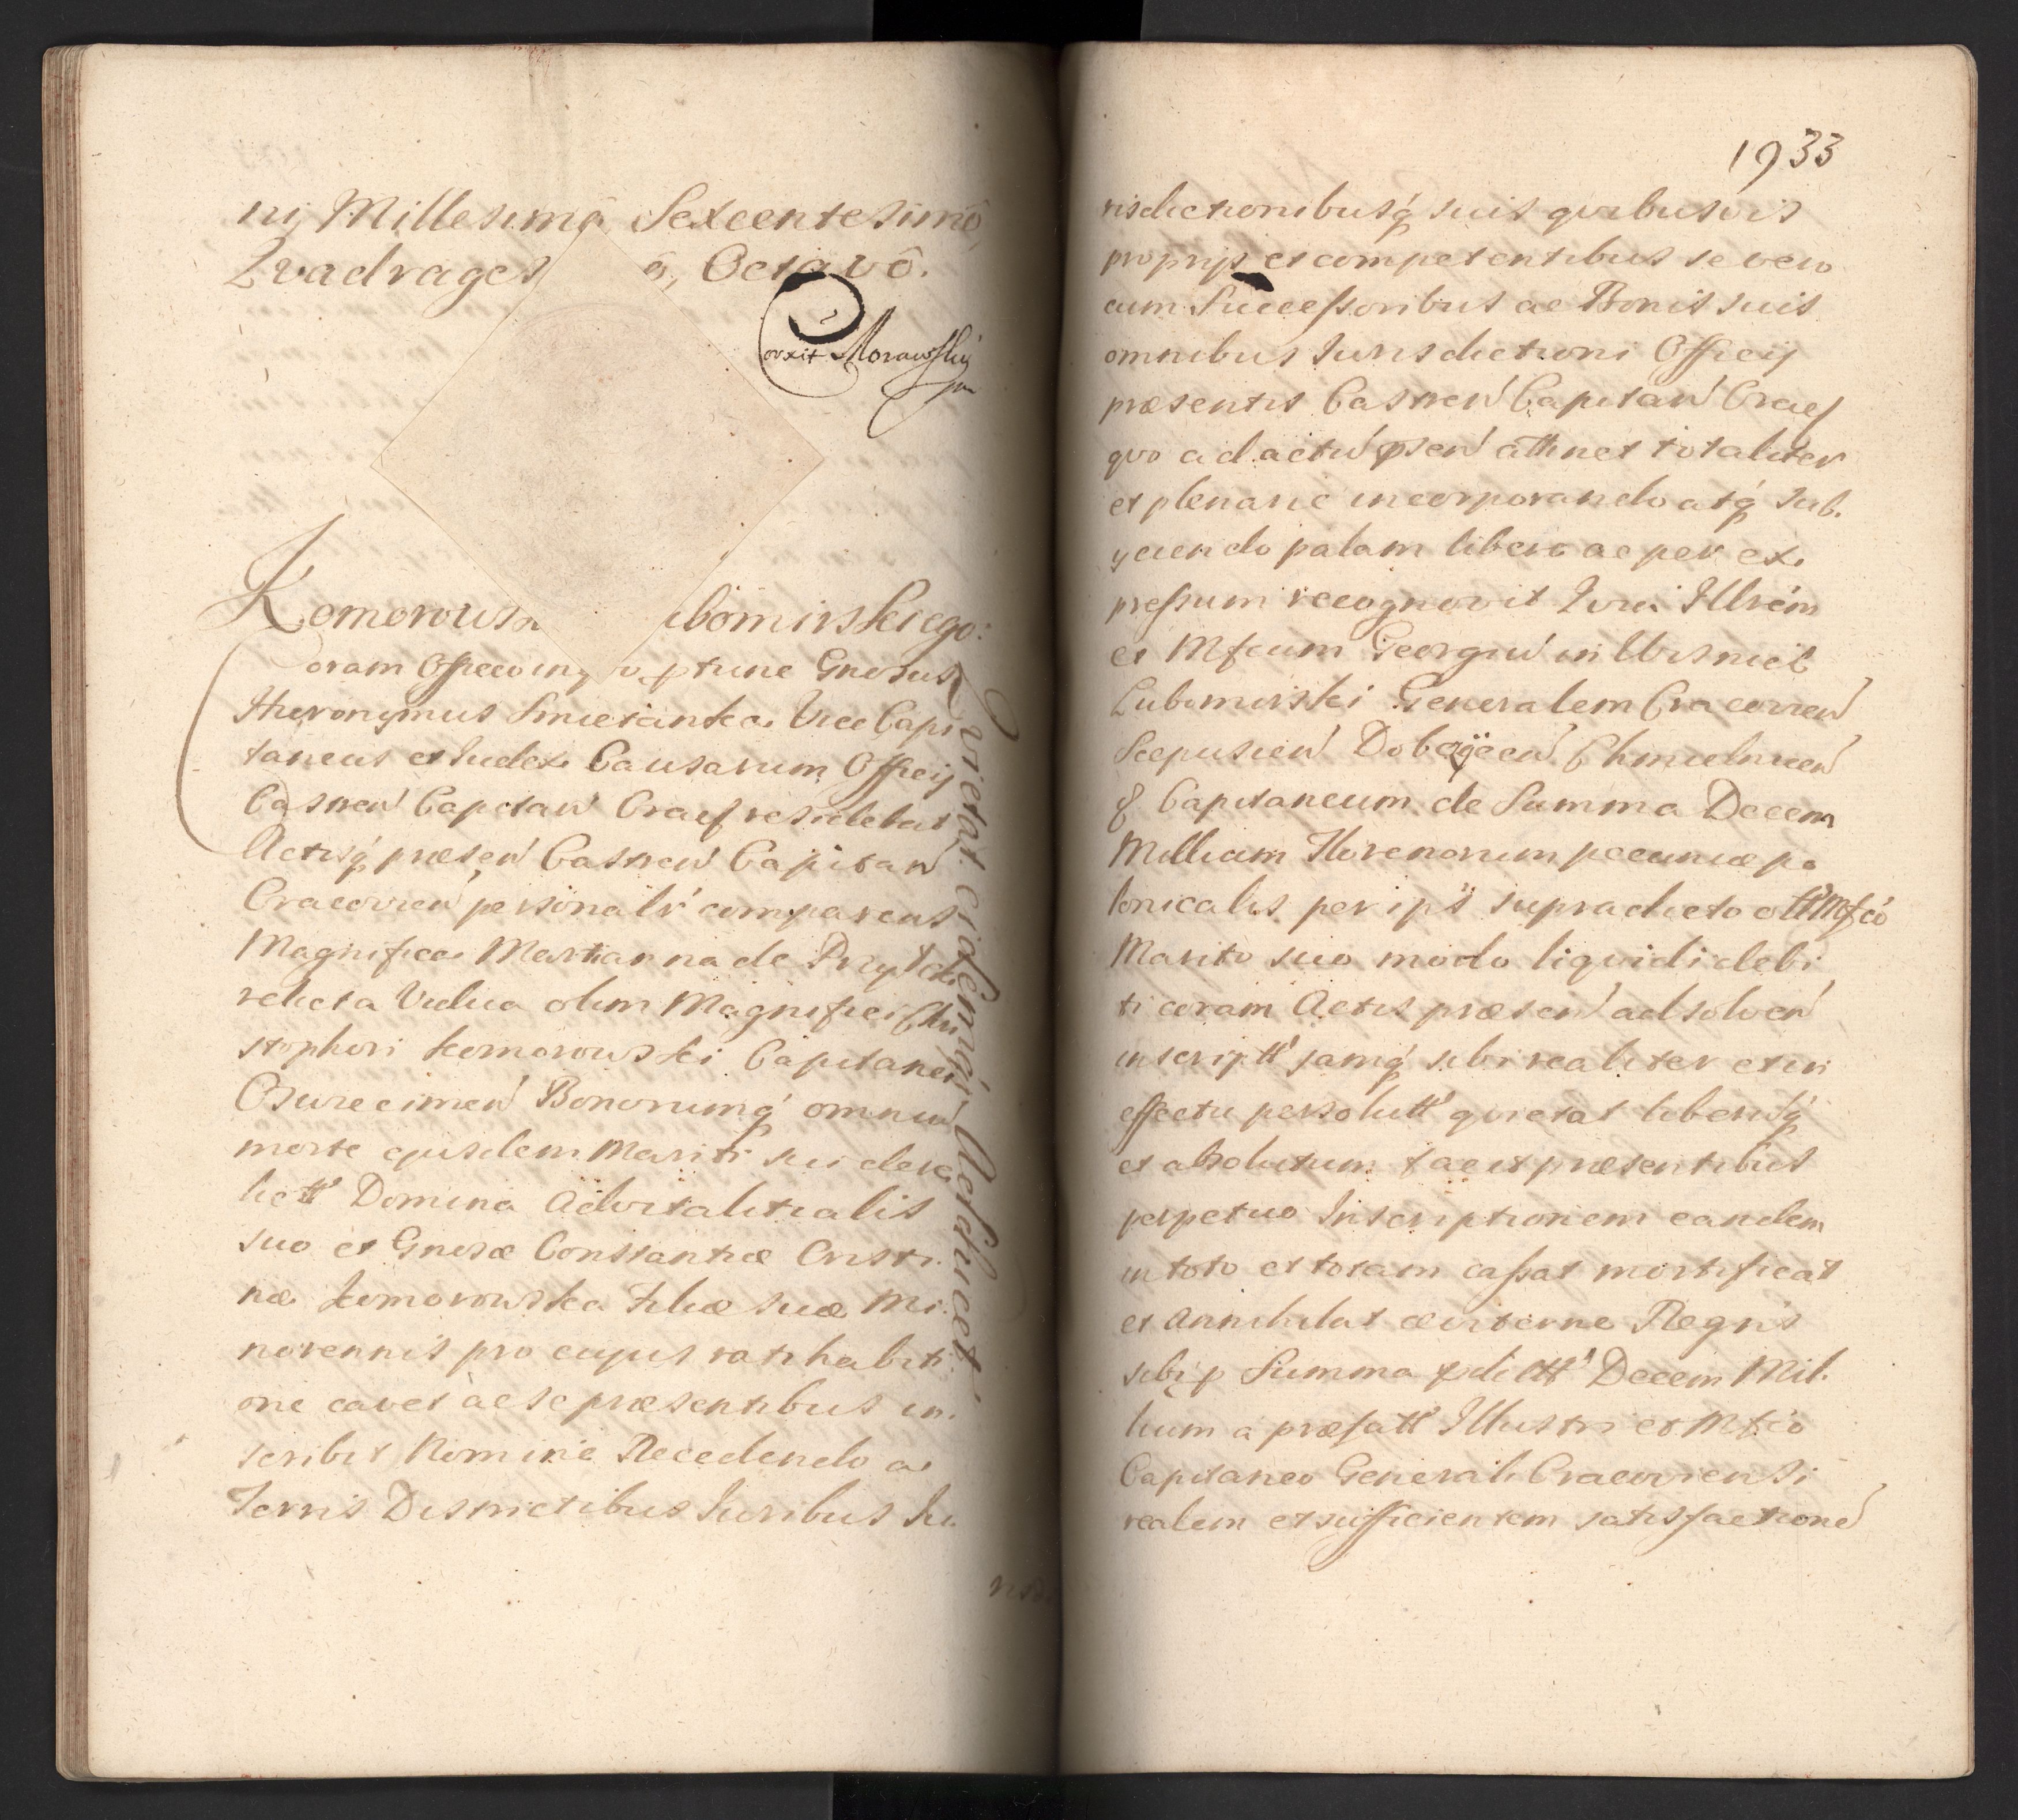 ni, Millesimô Sexcentesimô,
Qvadrages ô, Octavô.
orxit Morawskij
mp
Komorowsk ubomirskiego:
oram Officio inq ptune Gnosus
Hieronymus Smietanka Vice Capi
taneus et Iudex Causarum Officij
Castren Capitan Cracs residebat
Actisq præsen Castren Capitan
Cracovien personalr comparens
Magnifica Martianna de Przyłek
relicta Vidua olim Magnifici Chri
stophori Komorowski Capitanei
Oswiecimen Bonorumq omniu
morte ejusdem Mariti sui dere
lictt Domina Advitalitialis
suo et Gnosæ Constantiæ Cristi
næ Komorowska Filiæ suæ Mi.
norennis pro cujus ratihabiti
one cavet ac se præsentibus in.
scribit Nomine Recedendo a
Terris Districtibus Iuribus Iu.
Qvietat eidemq Adhæret
1933
risdictionibusq suis qvibusvis
proprijs et competentibus se vero
cum Successoribus ac Bonis suis
omnibus Iurisdictioni Officij
præsentis Castren Capitan Cracs
qvo ad actu psen attinet totaliter
et plenarie incorporando atq sub.
yciendo palam libere ac per ex.
pressum recognovit Qvia Illrem
et Mfcum Georgiu in Wisnicz
Lubomirski Generalem Cracovien
Scepusien Dobczycen Chmielnicen
& Capitaneum de Summa Decem
Millium Florenorum pecuniæ po
lonicalis per ips supradicto olim Mfco
Marito suo modo liqvidi debi
ti coram Actis præsen ad solven
inscriptt jamq sibi realiter et in
effectu persolutt qvietat liberuq
et absolutum facit præsentibus
perpetuo Inscriptionem eandem
in toto et totam cassat mortificat
et annihilat æviterne Regnis
sibi p Summa pdictt Decem Mil.
lium a præfatt Illustri et Mfco
Capitaneo Generali Cracoviensi
realem et sufficientem satisfactione